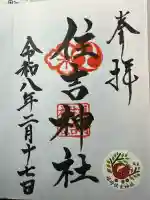 奉拝
住吉神社
令和八年二月十七日